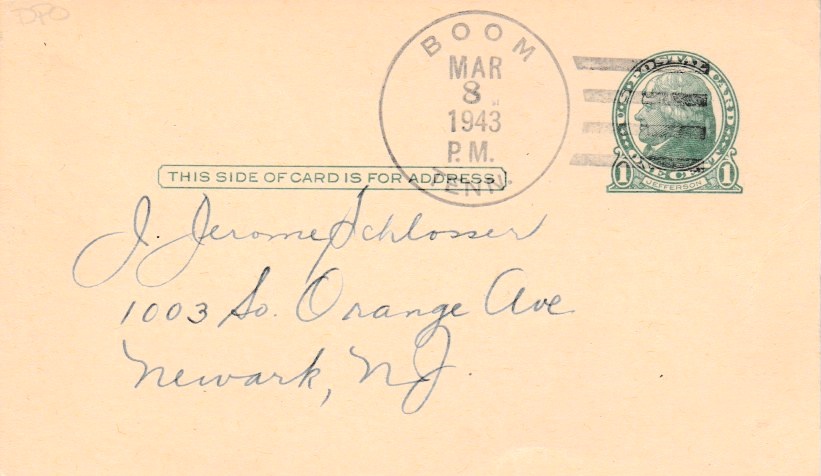 DPO
BOOM
MAR
8
1943
P.M.
TENN.
U.S. POSTAL CARD
ONE CENT
1 JEFFERSON 1
THIS SIDE OF CARD IS FOR ADDRESS
J. Jerome Schlosser
1003 So. Orange Ave
Newark, NJ.